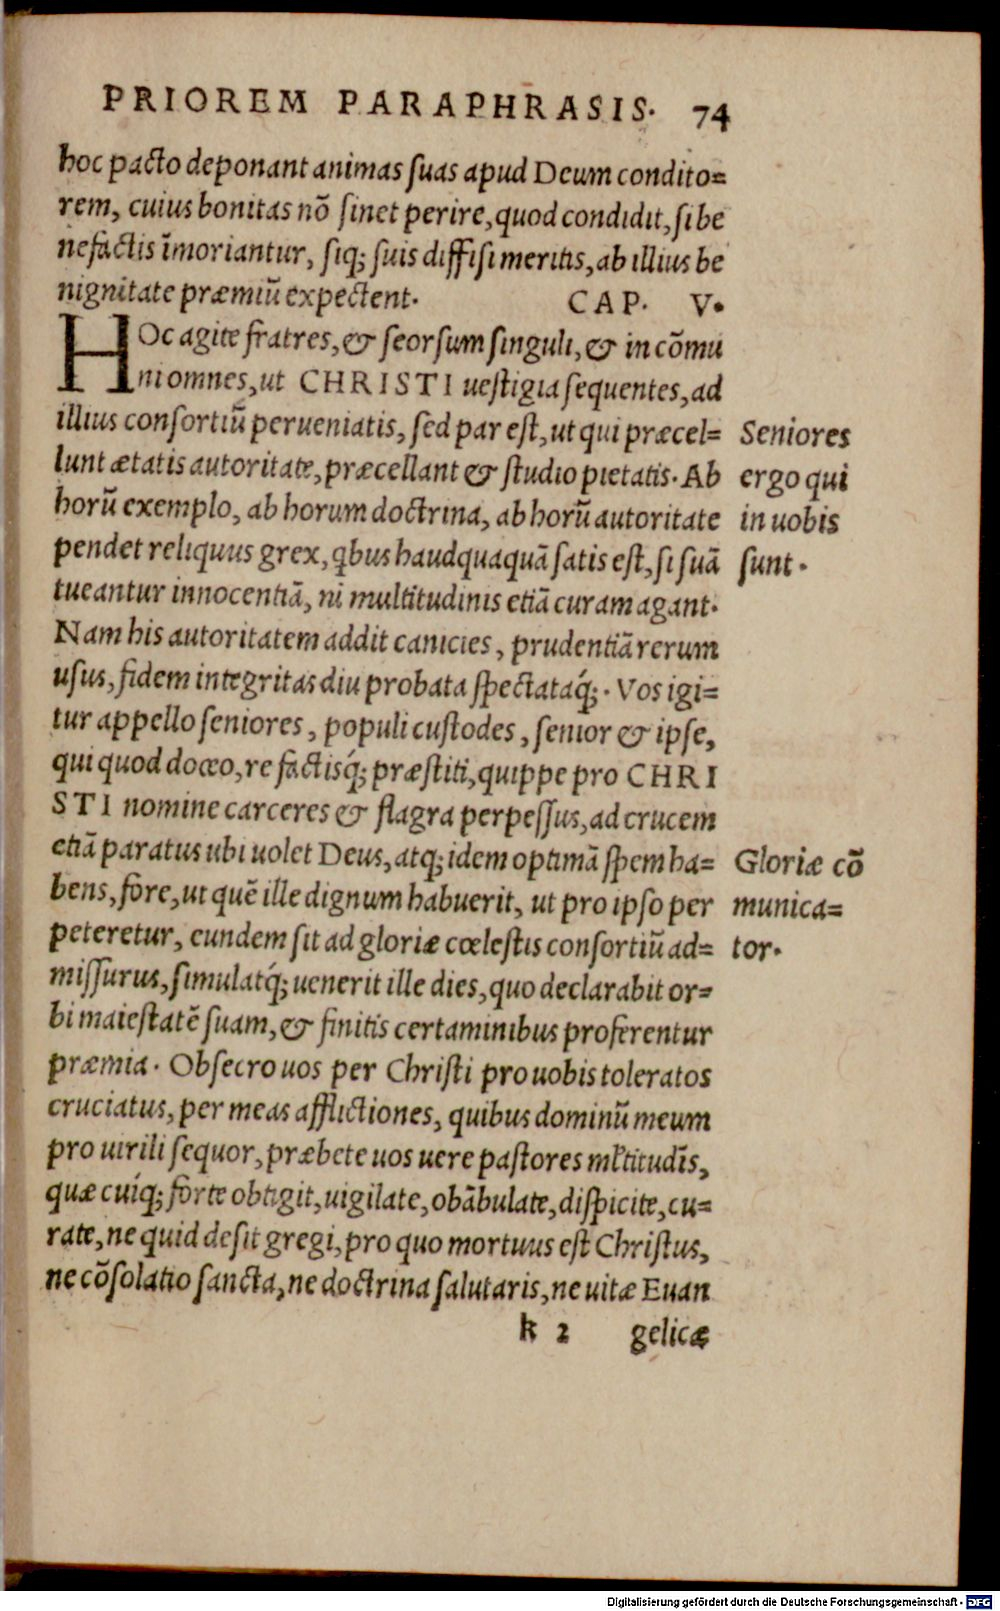 PRIOREM PARAPHRASIS. 74
hoc pacto deponant animas suas apud Deum condito=
rem, cuius bonitas nō sinet perire, quod condidit, si be
nefactis īmoriantur, siq; suis diffisi meritis, ab illius be
nignitate præmiū expectent.
CAP. V.
HOc agite fratres, & seorsum singuli, & in cōmu
ni omnes, ut CHRISTI uestigia sequentes, ad
illius consortiū perueniatis, sed par est, ut qui præcel=
lunt ætatis autoritate, præcellant & studio pietatis. Ab
horū exemplo, ab horum doctrina, ab horū autoritate
pendet reliquus grex, qbus haudquaquā satis est, si suā
tueantur innocentiā, ni multitudinis etiā curam agant.
Nam his autoritatem addit canicies, prudentiā rerum
usus, fidem integritas diu probata spectataq́;. Vos igi=
tur appello seniores, populi custodes, senior & ipse,
qui quod doceo, re factisq́; præstiti, quippe pro CHRI
STI nomine carceres & flagra perpessus, ad crucem
etiā paratus ubi uolet Deus, atq; idem optimā spem ha=
bens, fore, ut quē ille dignum habuerit, ut pro ipso per
peteretur, eundem sit ad gloriæ cœlestis consortiū ad=
missurus, simulatq́; uenerit ille dies, quo declarabit or=
bi maiestatē suam, & finitis certaminibus proferentur
præmia. Obsecro uos per Christi pro uobis toleratos
cruciatus, per meas afflictiones, quibus dominū meum
pro uirili sequor, præbete uos uere pastores ml̄titudīs,
quæ cuiq́; forte obtigit, uigilate, obābulate, dispicite, cu=
rate, ne quid desit gregi, pro quo mortuus est Christus,
ne cōsolatio sancta, ne doctrina salutaris, ne uitæ Euan
k 2 gelicæ
Seniores
ergo qui
in uobis
sunt.
Gloriæ cō
munica=
tor.
Digitalisierung gefördert durch die Deutsche Forschungsgemeinschaft - DFG